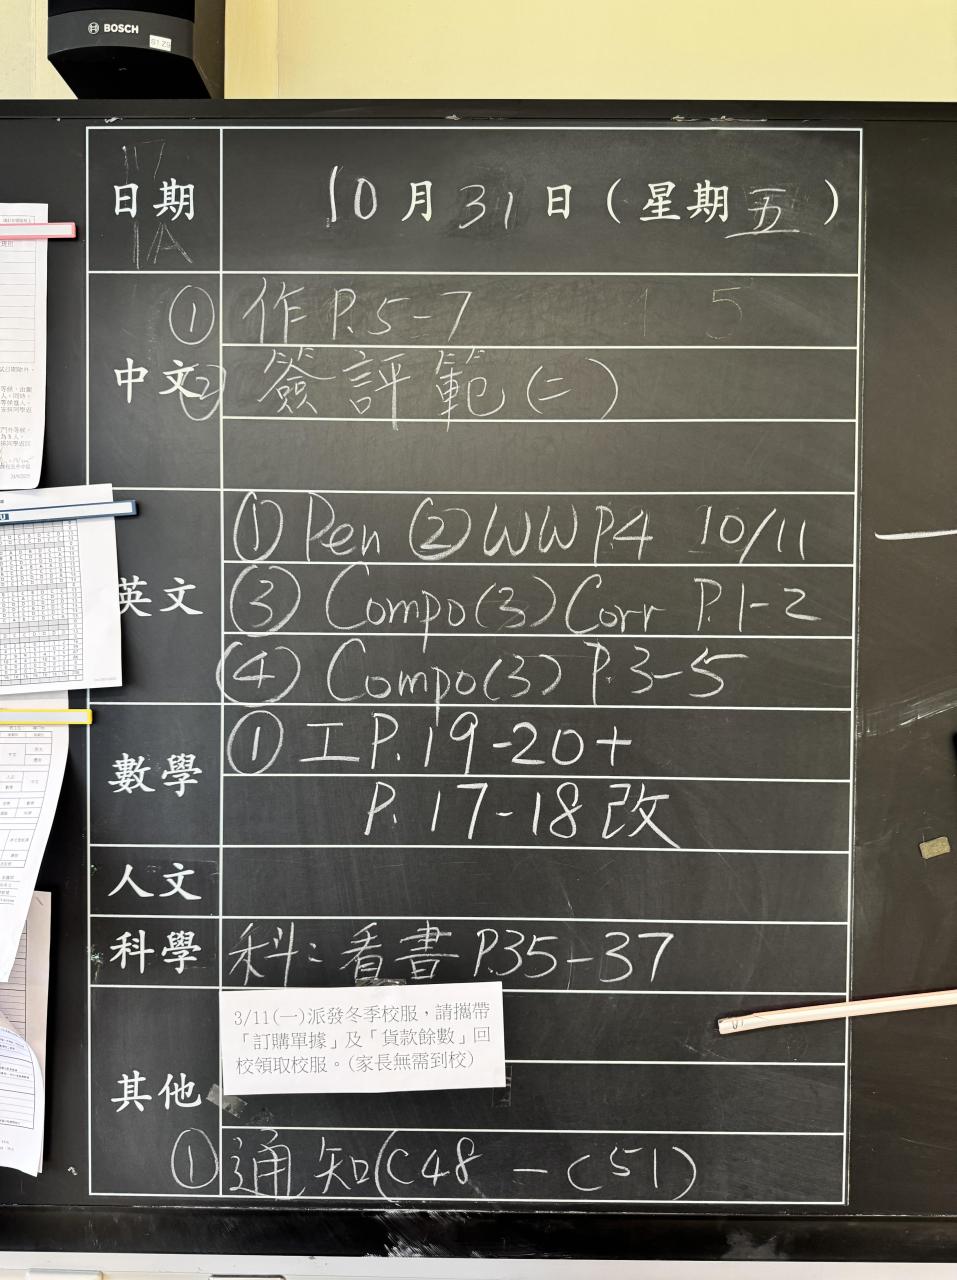 BOSCH
日期 10月31日(星期五)
1A
中文
① 作P.5-7
② 簽評範(二)
英文
① Pen ② WW P.4 10/11
③ Compo(3) Corr P.1-2
④ Compo(3) P.3-5
數學
① 工P.19-20+
P.17-18改
人文
科學
科:看書P.35-37
其他
3/11(一)派發冬季校服,請攜帶
「訂購單據」及「貨款餘數」回
校領取校服。(家長無需到校)
① 通知(C48-C51)